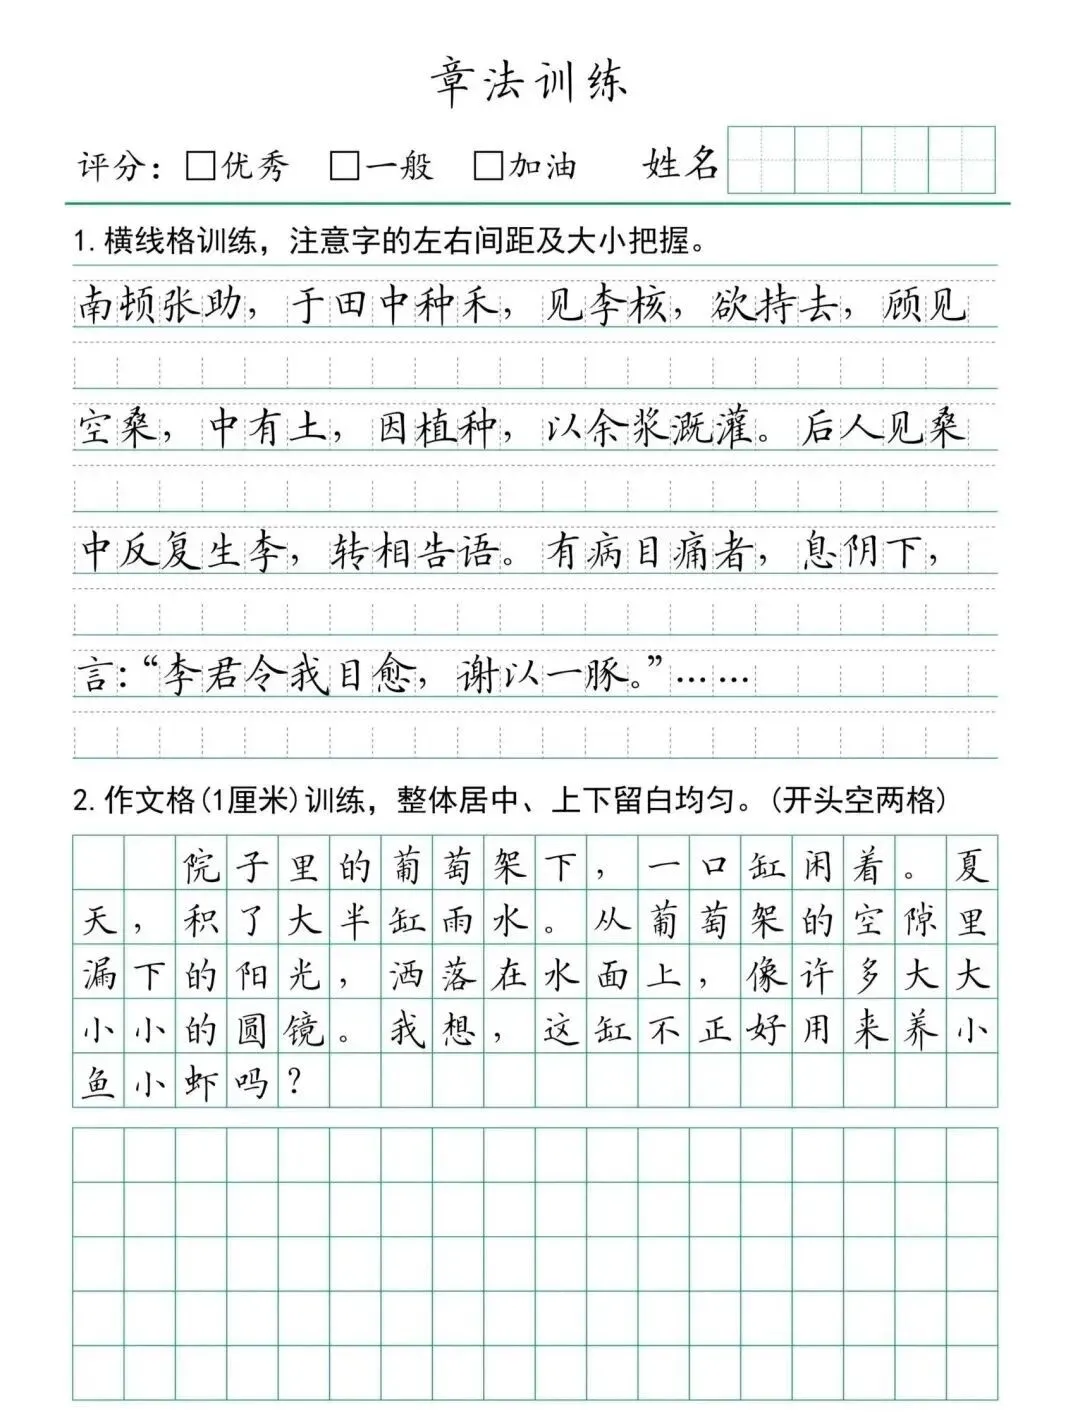 章法训练
评分：□优秀 □一般 □加油 姓名
1.横线格训练，注意字的左右间距及大小把握。
南顿张助，于田中种禾，见李核，欲持去，顾见
空桑，中有土，因植种，以余浆溉灌。后人见桑
中反复生李，转相告语。有病目痛者，息阴下，
言：“李君令我目愈，谢以一豚。”……
2.作文格(1厘米)训练，整体居中、上下留白均匀。(开头空两格)
院子里的葡萄架下，一口缸闲着。夏
天，积了大半缸雨水。从葡萄架的空隙里
漏下的阳光，洒落在水面上，像许多大大
小小的圆镜。我想，这缸不正好用来养小
鱼小虾吗？